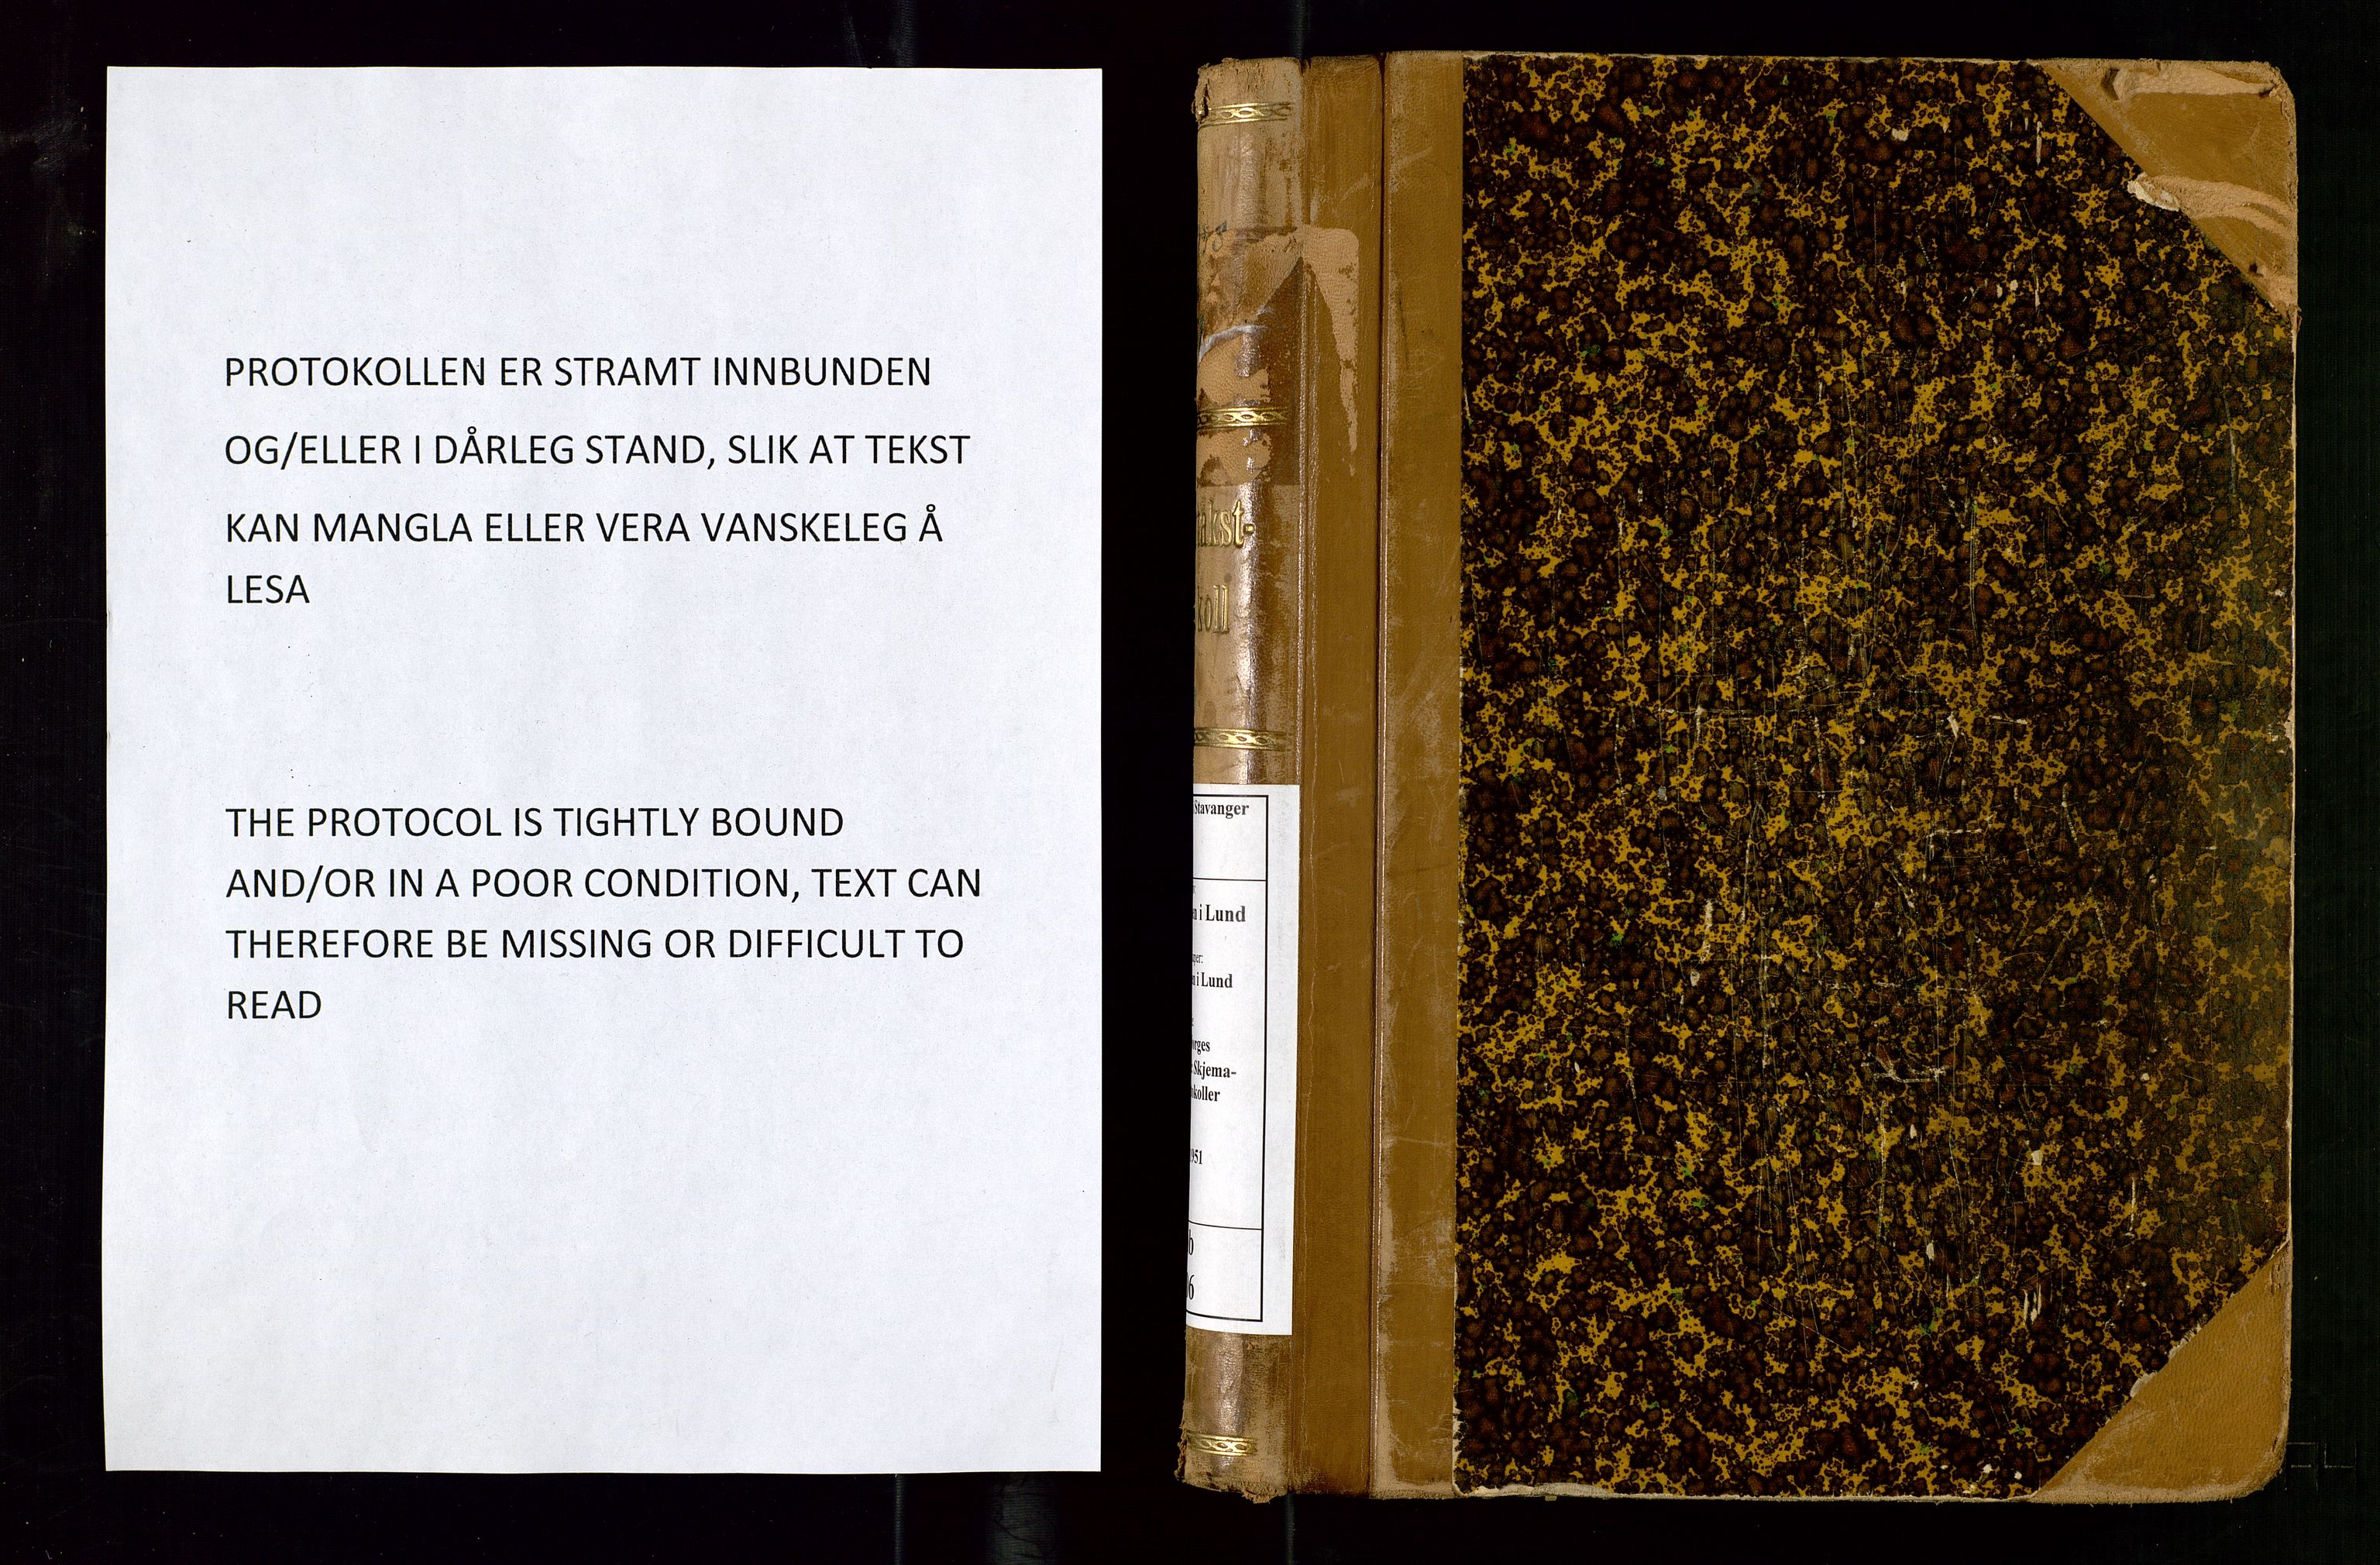 PROTOKOLLEN ER STRAMT INNBUNDEN
OG/ELLER I DÅRLEG STAND, SLIK AT TEKST
KAN MANGLA ELLER VERA VANSKELEG Å
LESA
THE PROTOCOL IS TIGHTLY BOUND
AND/OR IN A POOR CONDITION, TEXT CAN
THEREFORE BE MISSING OR DIFFICULT TO
READ
takst-
koll
Stavanger
n i Lund
ger:
n i Lund
orges
Skjema-
okoller
951
b
16